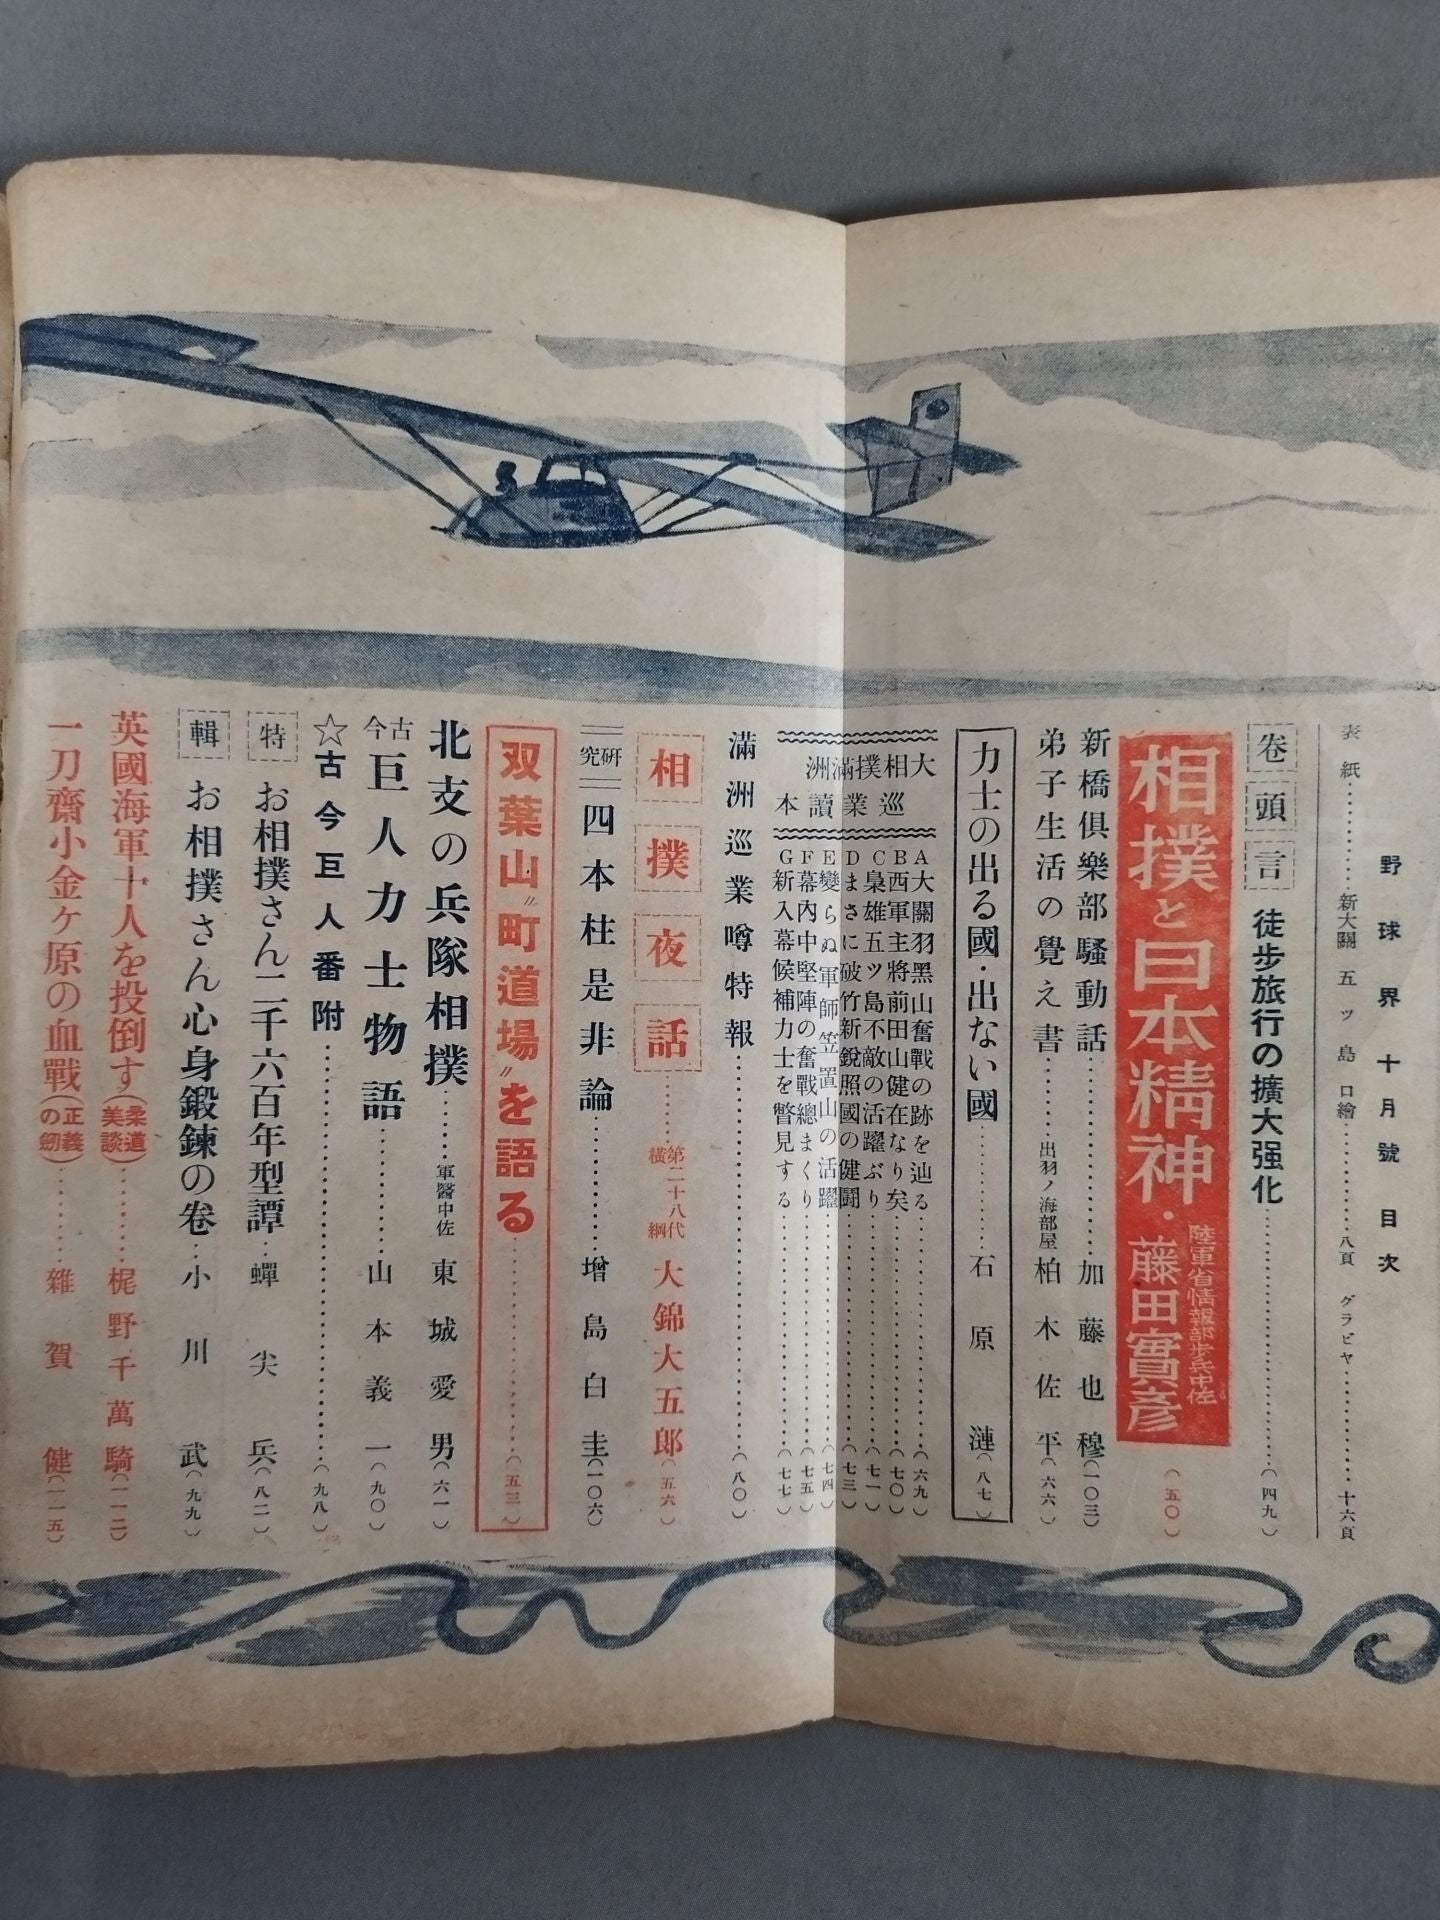 野球界十月號目次
表紙…………新大關 五ツ島 口繪…………八頁 グラビヤ…………十六頁
卷頭言 徒步旅行の擴大强化…………（四九）
相撲と日本精神・陸軍省情報部步兵中佐 藤田實彥（五〇）
新橋俱樂部騷動話…………加藤也穆（一〇三）
弟子生活の覺え書……出羽ノ海部屋 柏木佐平（六六）
力士の出る國・出ない國…………石原漣（八七）
大相撲滿洲巡業讀本
A大關羽黑山奮戰の跡を辿る…………（六九）
B西軍主將前田山健在なり矣…………（七〇）
C梟雄五ツ島不敵の活躍ぶり…………（七一）
Dまさに破竹新銳照國の健鬪…………（七三）
E變らぬ軍師笠置山の活躍…………（七四）
F幕內中堅陣の奮戰總まくり…………（七五）
G新入幕候補力士を瞥見する…………（七七）
滿洲巡業噂特報…………（八〇）
相撲夜話……第二十八代橫綱 大錦大五郎（五六）
研究 四本柱是非論…………增島白圭（一〇六）
双葉山〝町道場〟を語る…………（五三）
北支の兵隊相撲……軍醫中佐 東城愛男（六一）
古今 巨人力士物語…………山本義一（九〇）
☆古今巨人番附…………（九八）
特 お相撲さん二千六百年型譚…蟬尖兵（八二）
輯 お相撲さん心身鍛鍊の卷…小川武（九九）
英國海軍十人を投倒す（柔道美談）………梶野千萬騎（一一二）
一刀齋小金ケ原の血戰（正義の劒）………雜賀健（一一五）